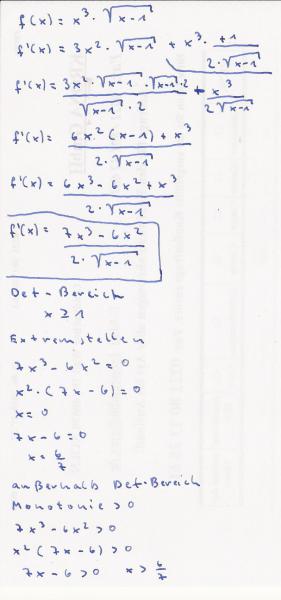 f(x) = x³ · √(x-1)
f'(x) = 3x² · √(x-1) + x³ · +1/(2·√(x-1))
f'(x) = (3x² · √(x-1) · √(x-1) · 2)/(√(x-1) · 2) + x³/(2√(x-1))
f'(x) = (6x² (x-1) + x³)/(2 · √(x-1))
f'(x) = (6x³ - 6x² + x³)/(2 · √(x-1))
f'(x) = (7x³ - 6x²)/(2 · √(x-1))
Def-Bereich
x ≥ 1
Extremstellen
7x³ - 6x² = 0
x² · (7x - 6) = 0
x = 0
7x - 6 = 0
x = 6/7
außerhalb Def-Bereich
Monotonie > 0
7x³ - 6x² > 0
x² (7x - 6) > 0
7x - 6 > 0 x > 6/7